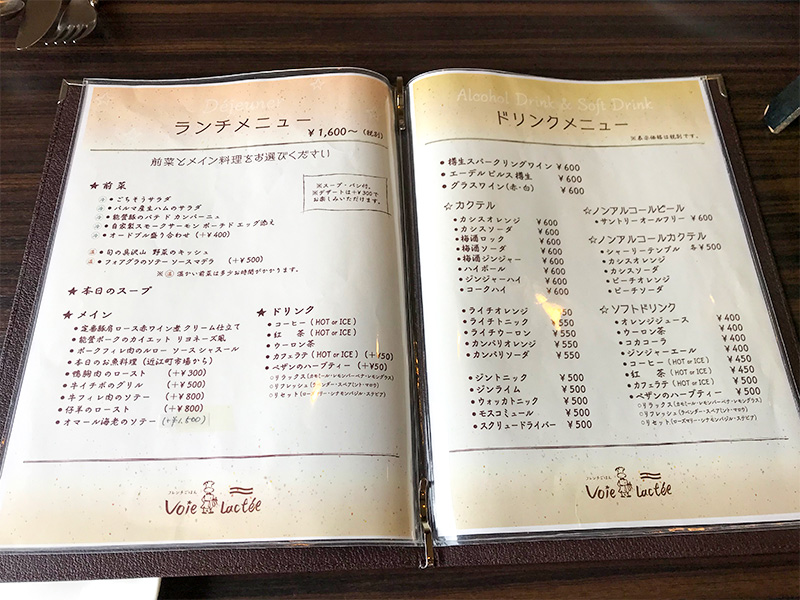 Déjeuner
ランチメニュー
￥1,600～(税別)
前菜とメイン料理をお選びください
★ 前菜
※スープ・パン付。
※デザートは+￥300で
お楽しみいただけます。
• ごちそうサラダ
• パルマ産生ハムのサラダ
• 能登豚のパテ ド カンパーニュ
• 自家製スモークサーモン ポーチド エッグ添え
• オードブル盛り合わせ (+￥400)
温 • 旬の兵沢山 野菜のキッシュ
温 • フォアグラのソテー ソースマデラ (+￥500)
※温 温かい前菜は多少お時間がかかります。
★ 本日のスープ
★ メイン
• 宝番豚肩ロース赤ワイン煮 クリーム仕立て
• 能登ポークのカイエット リヨネーズ風
• ポークフィレ肉のルロー ソース シャスール
• 本日のお魚料理 (近江町市場から)
• 鴨胸肉のロースト (+￥300)
• 牛イチボのグリル (+￥500)
• 牛フィレ肉のソテー (+￥800)
• 仔羊のロースト (+￥800)
• オマール海老のソテー (+￥1,500)
★ ドリンク
• コーヒー (HOT or ICE)
• 紅 茶 (HOT or ICE)
• ウーロン茶
• カフェラテ (HOT or ICE) (+￥50)
• ペザンのハーブティー (+￥50)
○リラックス(カモミール・レモンバーベナ・レモングラス)
○リフレッシュ(ラベンダー・スペアミント・マロウ)
○リセット(ローズマリー・シナモンバジル・ステビア)
フレンチごはん
Voie Lactée
Alcohol Drink & Soft Drink
ドリンクメニュー
※表示価格は税別です。
• 樽生スパークリングワイン ￥600
• エーデルピルス樽生 ￥600
• グラスワイン(赤・白) ￥600
☆ カクテル
• カシスオレンジ ￥600
• カシスソーダ ￥600
• 梅酒ロック ￥600
• 梅酒ソーダ ￥600
• 梅酒ジンジャー ￥600
• ハイボール ￥600
• ジンジャーハイ ￥600
• コークハイ ￥600
• ライチオレンジ ￥550
• ライチトニック ￥550
• ライチウーロン ￥550
• カンパリオレンジ ￥550
• カンパリソーダ ￥550
• ジントニック ￥500
• ジンライム ￥500
• ウォッカトニック ￥500
• モスコミュール ￥500
• スクリュードライバー ￥500
☆ ノンアルコールビール
• サントリーオールフリー ￥600
☆ ノンアルコールカクテル
• シャーリーテンプル 各￥500
• カシスオレンジ
• カシスソーダ
• ピーチオレンジ
• ピーチソーダ
☆ ソフトドリンク
• オレンジジュース ￥400
• ウーロン茶 ￥400
• コカコーラ ￥400
• ジンジャーエール ￥400
• コーヒー (HOT or ICE) ￥450
• 紅 茶 (HOT or ICE) ￥450
• カフェラテ (HOT or ICE) ￥500
• ペザンのハーブティー ￥500
○リラックス(カモミール・レモンバーベナ・レモングラス)
○リフレッシュ(ラベンダー・スペアミント・マロウ)
○リセット(ローズマリー・シナモンバジル・ステビア)
フレンチごはん
Voie Lactée